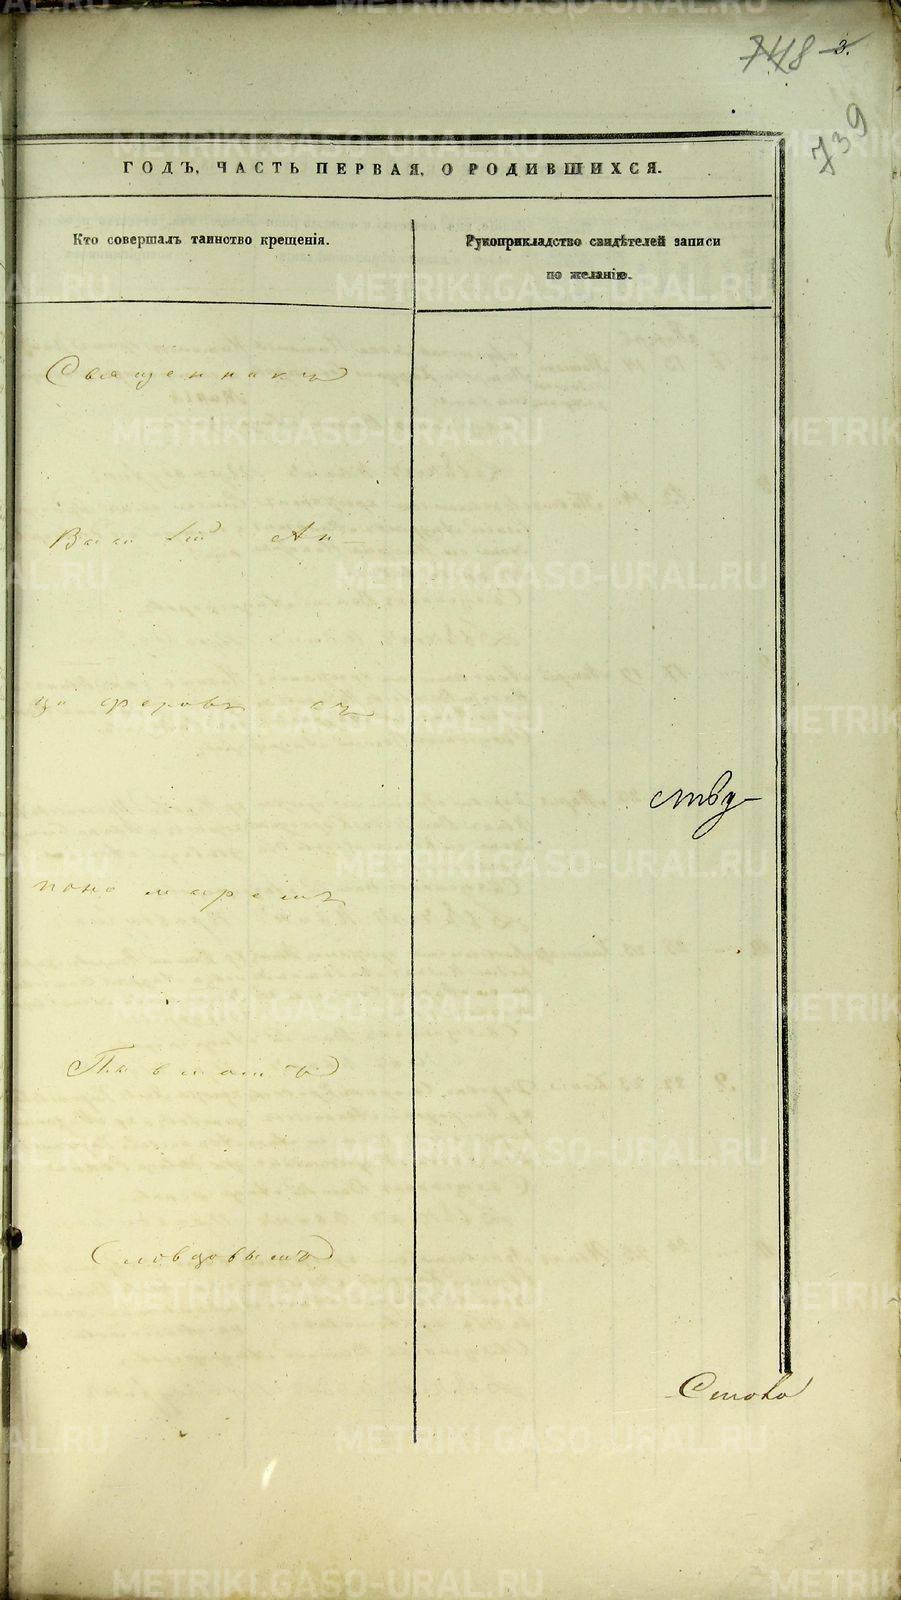 748 3.
739
ГОДЪ, ЧАСТЬ ПЕРВАЯ, О РОДИВШИХСЯ.
Кто совершалъ таинство крещенія.
Рукоприкладство свидѣтелей записи
по желанію.
Священникъ
Василій Ан-
циферовъ съ
пономаремъ
Словцовымъ
METRIKI.GASO-URAL.RU